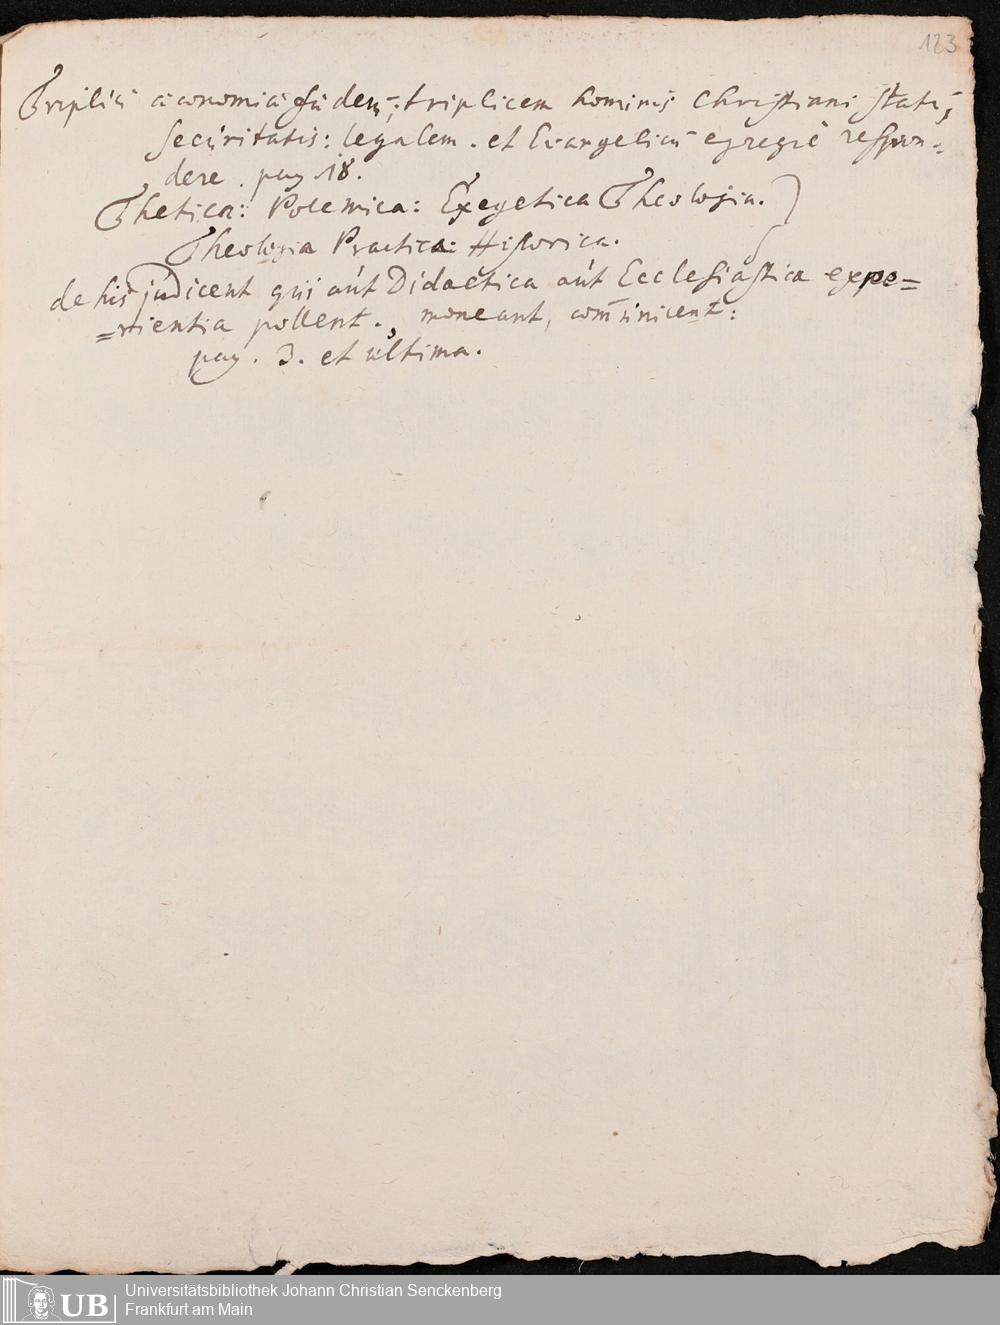 123
Triplici œconomiæ fœderū, triplicem hominis Christiani statū,
securitatis: legalem. et Evangelicū egregiè respon-
dere. pag. 18.
Thetica: Polemica: Exegetica Theologia.
Theologia Practica: Historica.
de his judicent qui aut Didactica aut Ecclesiastica expe=
=rientia pollent., moneant, com̄unicent:
pag. 3. et ultima.
UB
Universitätsbibliothek Johann Christian Senckenberg
Frankfurt am Main